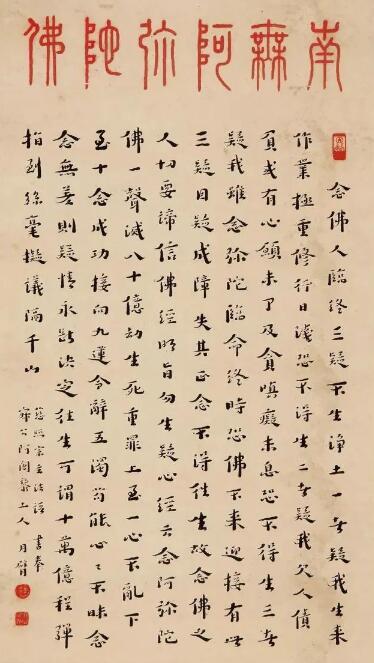 南無阿弥陀佛
念佛人臨終三疑不生淨土一者疑我生来
作業極重修行日淺恐不得生二者疑我欠人債
負或有心願未了及貪嗔癡未息恐不得生三者
疑我雖念弥陀臨命終時恐佛不来迎接有此
三疑因疑成障失其正念不得往生故念佛之
人切要諦信佛經明旨勿生疑心經云念阿弥陀
佛一聲滅八十億劫生死重罪上至一心不亂下
至十念成功接向九蓮令辭五濁苟能心〻不昧念
念無差則疑情永斷決定往生可謂十萬億程彈
指到絲毫擬議隔千山
慈照宗主法語 書奉
公阿闍黎上人 月臂